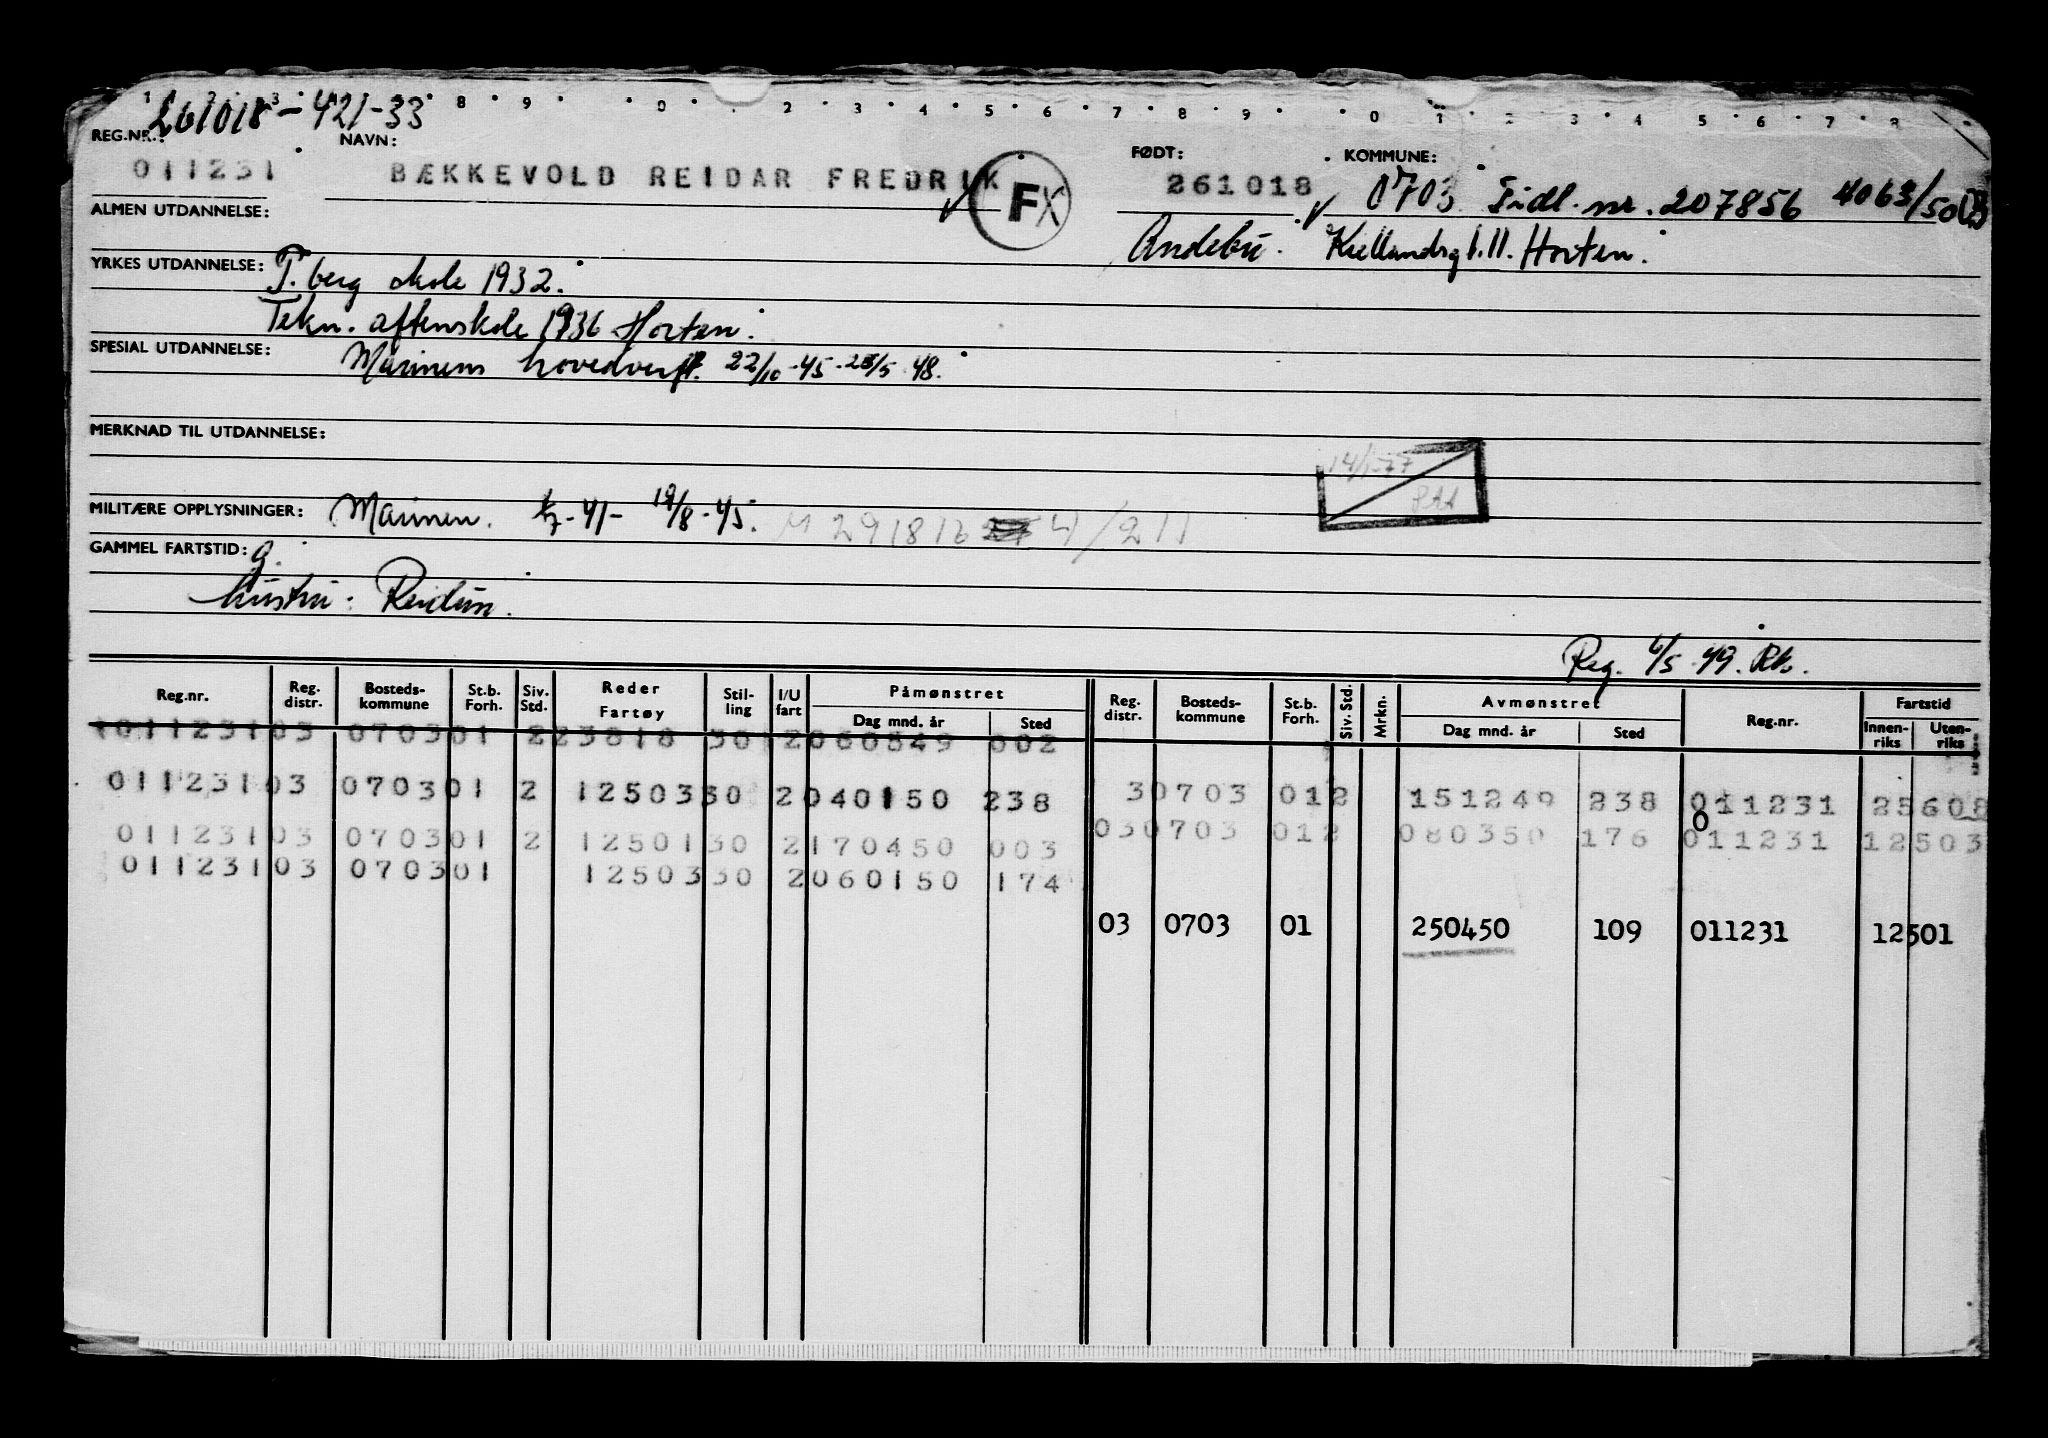 1 2 3 8 9 0 2 3 4 5 6 7 8 9 0 1 2 3 4 5 6 7 8
261018-421-33
REG.NR.: NAVN: FØDT: KOMMUNE:
011231 BÆKKEVOLD REIDAR FREDRIK FX 261018 0703 Tidl. nr. 207856 4063/50
ALMEN UTDANNELSE: Andebu. Kiellandsg 1.11. Horten.
YRKES UTDANNELSE: T.berg skole 1932.
Tekn. aftenskole 1936 Horten.
SPESIAL UTDANNELSE: Marinens hovedverft. 22/10-45-25/5 48.
MERKNAD TIL UTDANNELSE:
14/1-77
MILITÆRE OPPLYSNINGER: Marinen. 1/7-41- 19/8-45. M 291816 4/211
GAMMEL FARTSTID: g.
hustru: Reidun.
Reg. 6/5-49. Rk.
Reg.nr. Reg. distr. Bosteds-kommune St.b. Forh. Siv. Std. Reder Fartøy Stil-ling I/U fart Påmønstret Dag mnd. år Sted Reg. distr. Bosteds-kommune St.b. Forh. Siv. Std. Mrkn. Avmønstret Dag mnd. år Sted Reg.nr. Fartstid Innen-riks Uten-riks
011231 03 0703 01 2 23818 30 2 060849 002
011231 03 0703 01 2 12503 30 2 040150 238 30703 01 2 151249 238 011231 25608
011231 03 0703 01 2 12501 30 2 170450 003 03 0703 01 2 080350 176 011231 12503
011231 03 0703 01 12503 30 2 060150 174
03 0703 01 250450 109 011231 12501